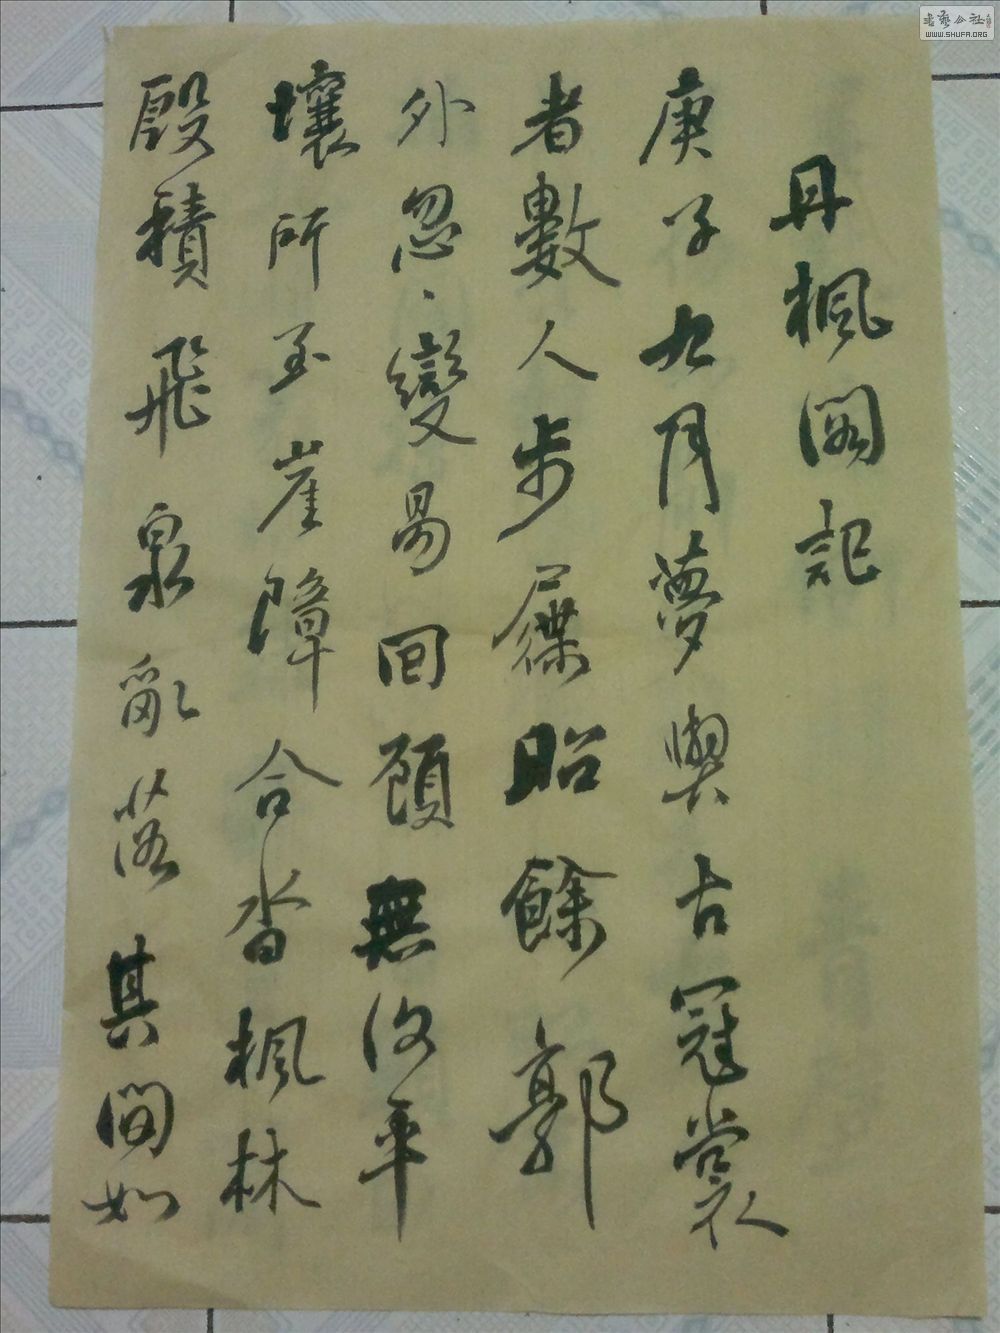 丹楓閣記
庚子九月夢與古冠裳
者數人步屧昭餘郭
外忽、變易回顧無復平
壤所至崖障合沓楓林
殷積飛泉亂落其間如
書藝公社
WWW.SHUFA.ORG